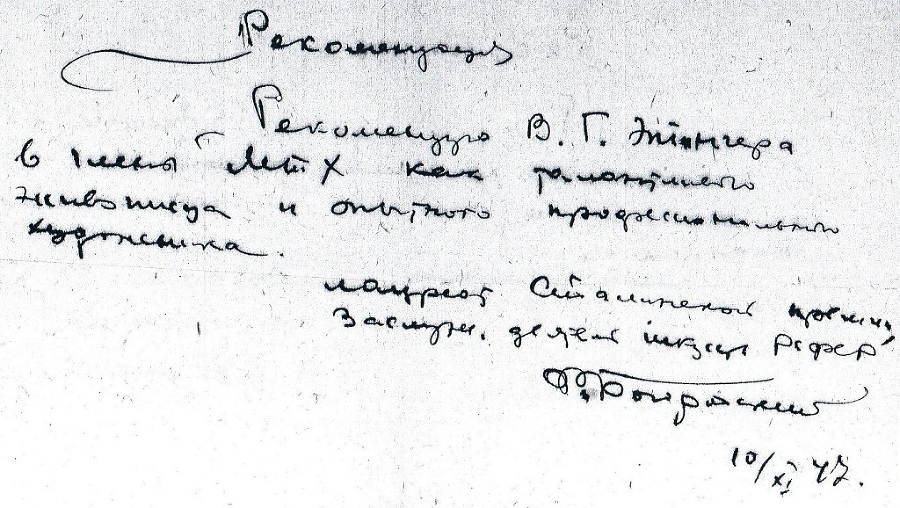 Рекомендация
Рекомендую В. Г. Этингера
в члены МТХ как талантливого
живописца и опытного профессионального
художника.
лауреат Сталинской премии,
Заслуж. деятел искусств РСФСР
10/XI 47.